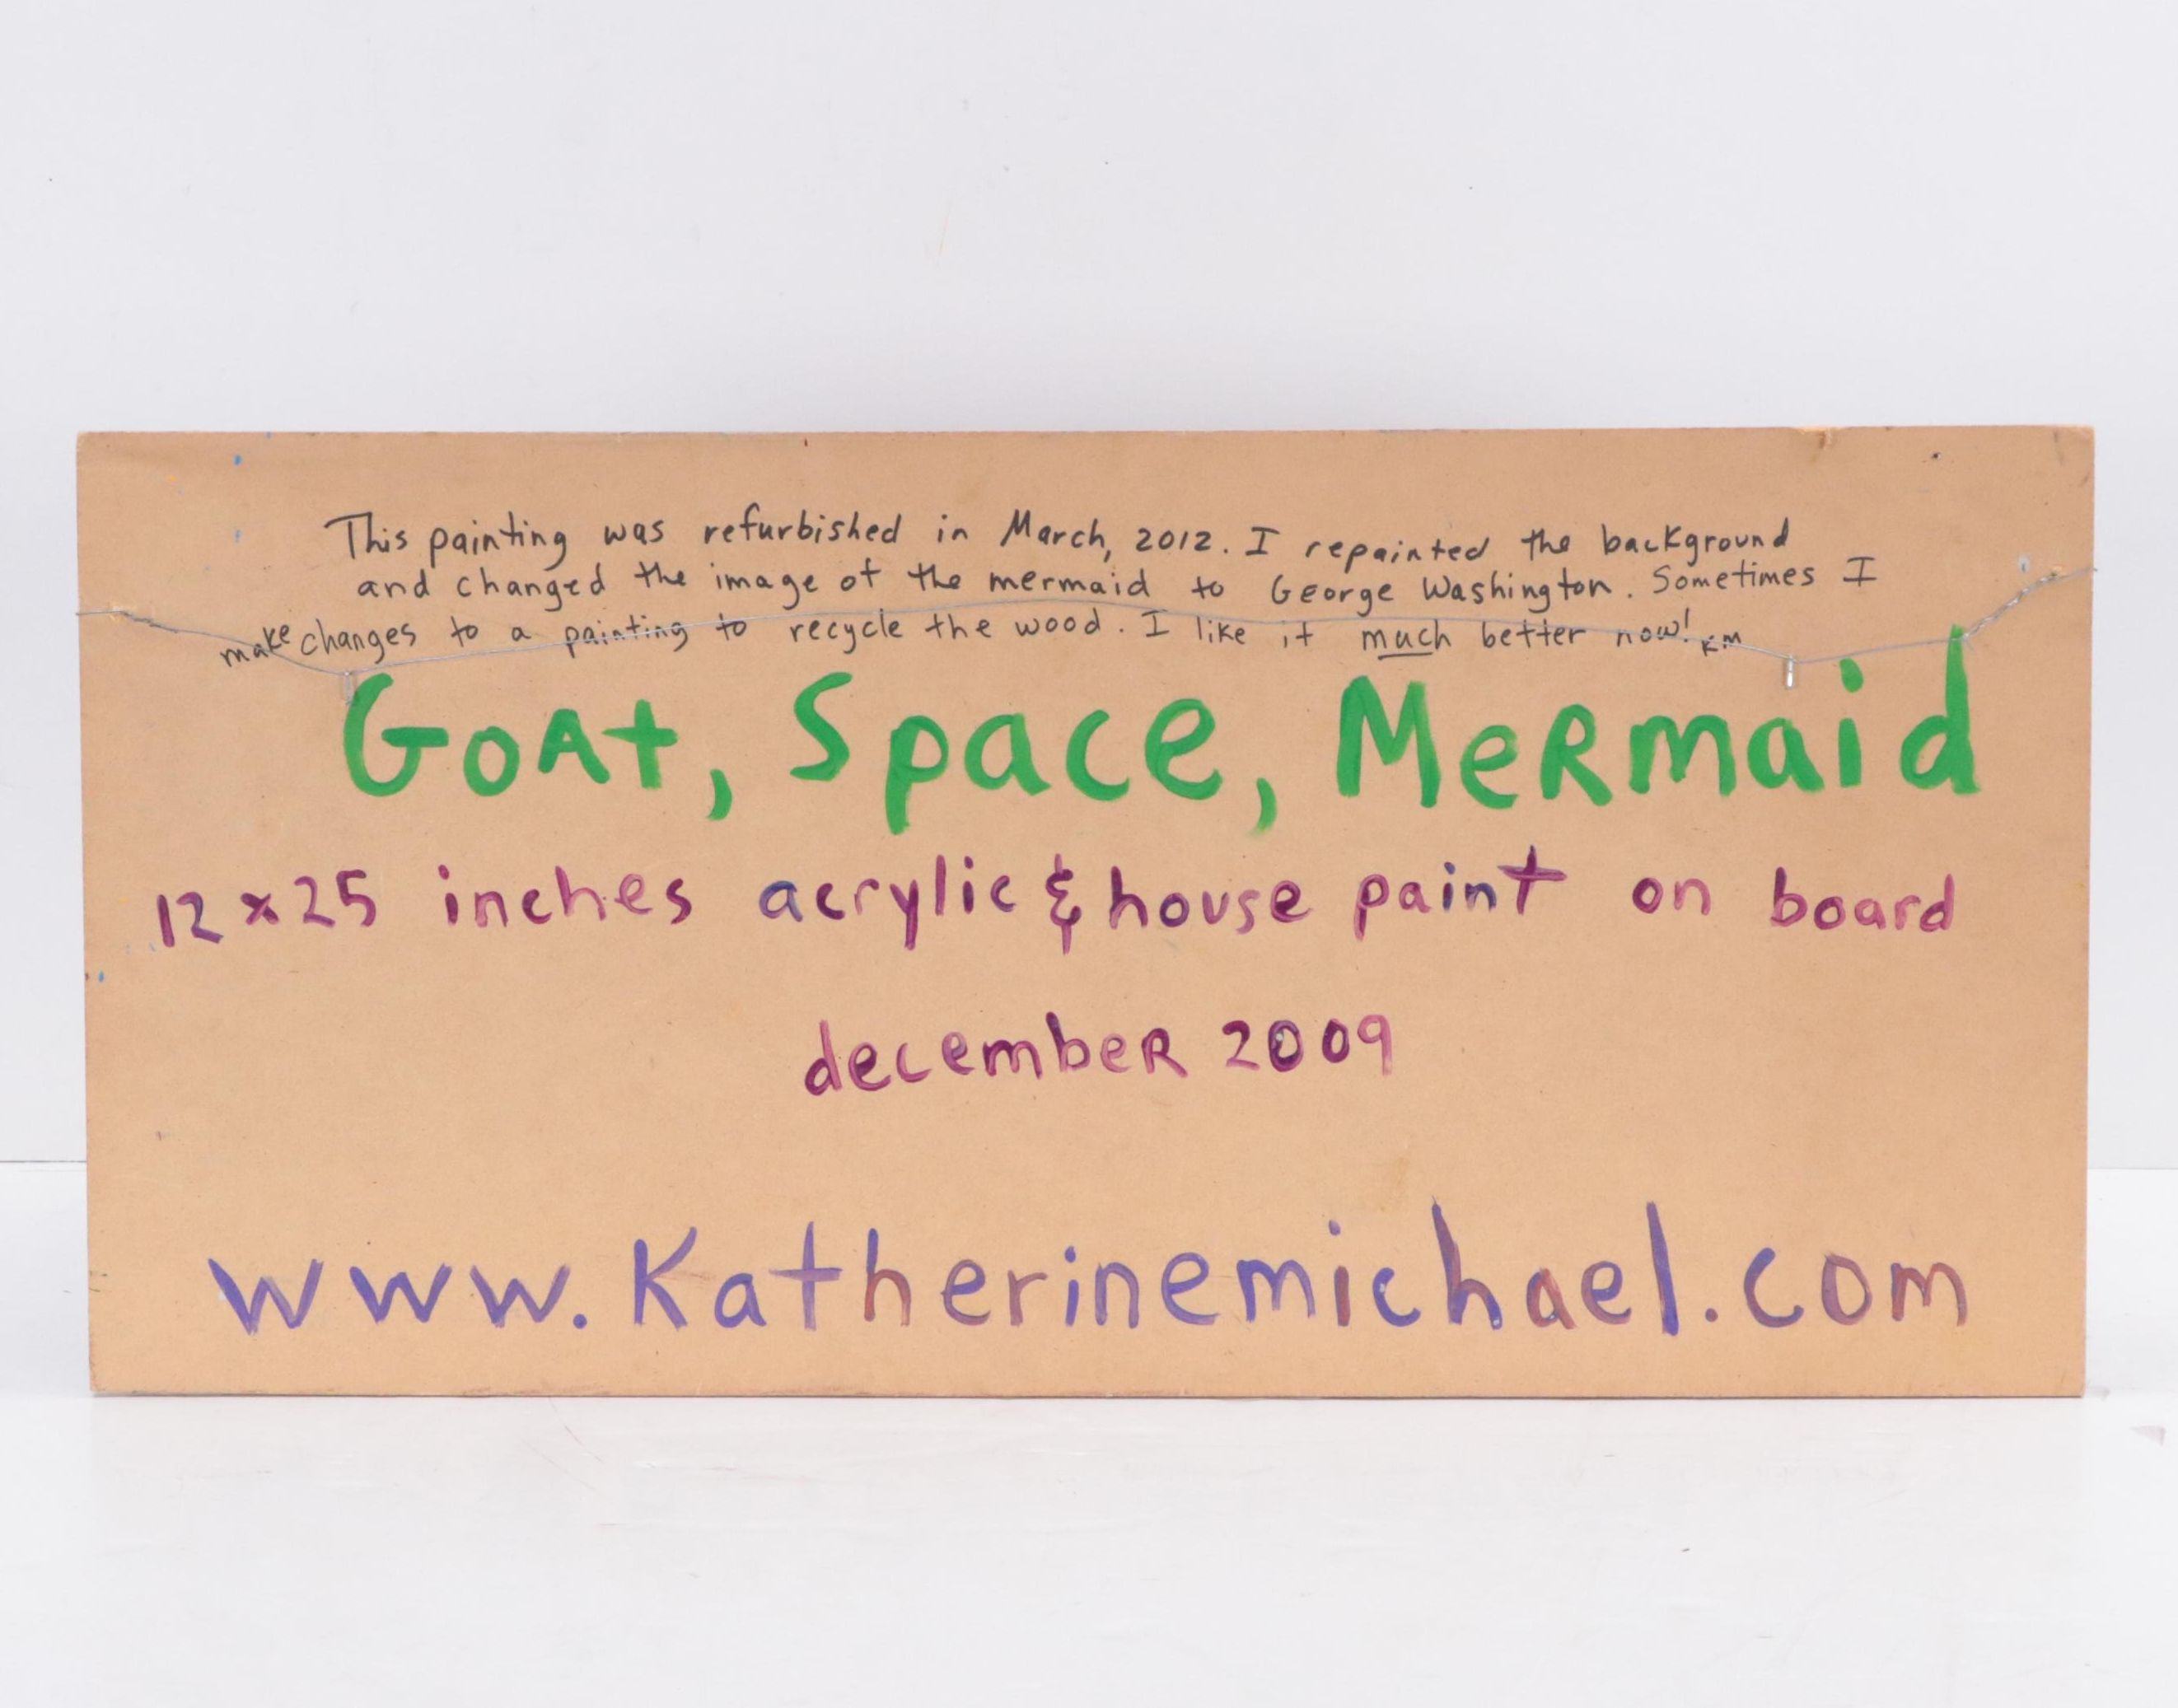 This painting was refurbished in March, 2012. I repainted the background
and changed the image of the mermaid to George Washington. Sometimes I
make changes to a painting to recycle the wood. I like it much better now! KM
GoAt, Space, MeRmaid
12x25 inches acrylic & house paint on board
decembeR 2009
www.Katherinemichael.com